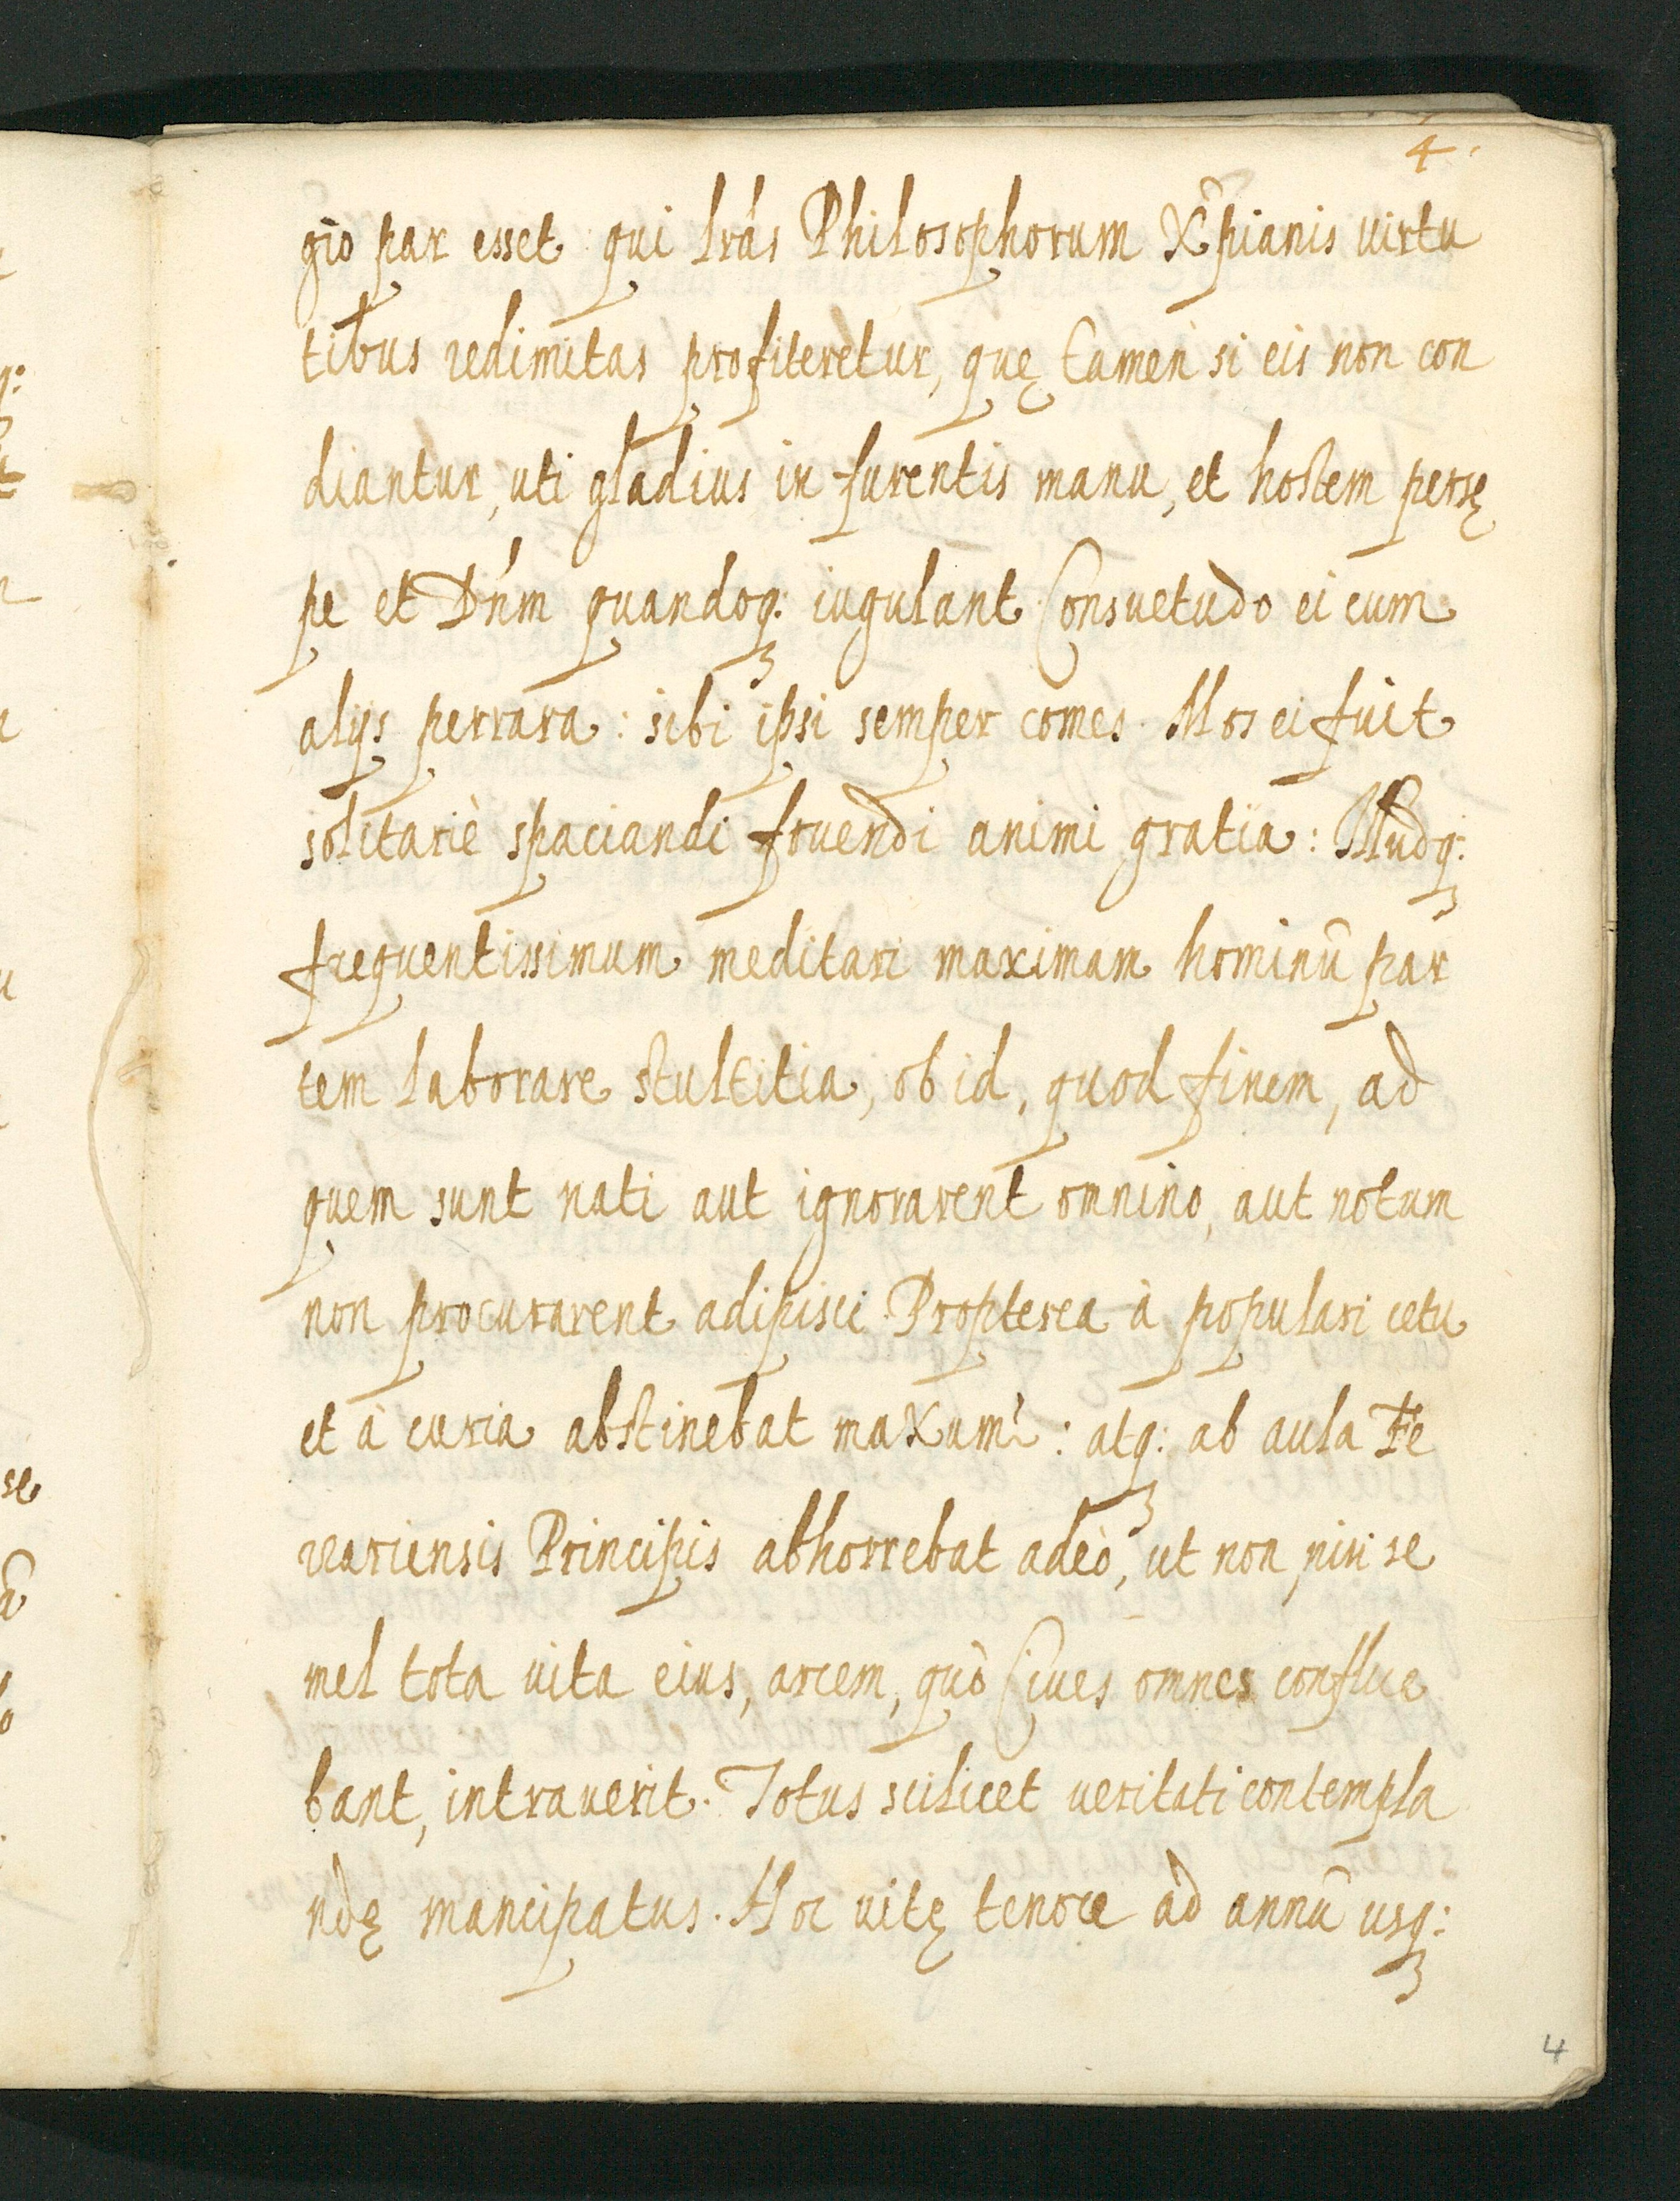 4.
gio par esset qui lrās Philosophorum X̄pianis uirtu
tibus redimitas profiteretur, quę tamen si eis non con
diantur, uti gladius in furentis manu, et hostem persę
pe et Dn̄m quandoq: iugulant. Consuetudo ei cum
alijs perrara: sibi ipsi semper comes. Mos ei fuit
solitariè spaciandi fruendi animi gratia: Illudq:
frequentissimum meditari maximam hominū par
tem laborare stultitia, ob id, quod finem, ad
quem sunt nati aut ignorarent omnino, aut notum
non procurarent adipisci. Propterea à populari cetu
et à curia abstinebat maxumè: atq: ab aula Fe
rrariensis Principis abhorrebat adeò, ut non nisi se
mel tota uita eius, arcem, quò Ciues omnes conflue
bant, intrauerit. Totus scilicet ueritati contempla
ndę mancipatus. Hoc uitę tenore ad annū usq:
4